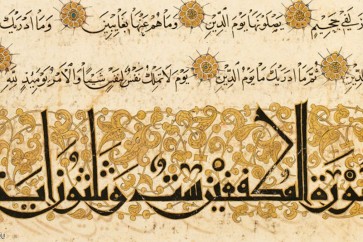 لفي جحيم يصلونها يوم الدين وما هم عنها بغائبين وما ادريك
ثم ما ادريك ما يوم الدين يوم لا تملك نفس لنفس شيئا والامر يومئذ لله
سورة المطففين ست وثلثون اية